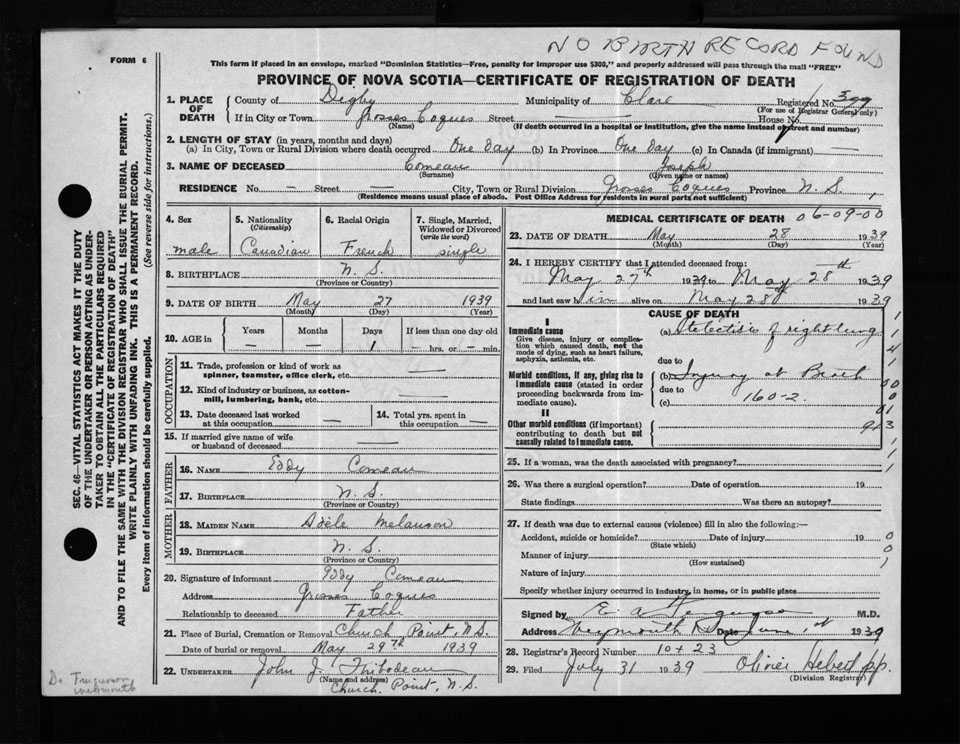 NO BIRTH RECORD FOUND
FORM 6
This form if placed in an envelope, marked "Dominion Statistics—Free, penalty for improper use $300," and properly addressed will pass through the mail "FREE"
PROVINCE OF NOVA SCOTIA—CERTIFICATE OF REGISTRATION OF DEATH
1. PLACE OF DEATH County of Digby Municipality of Clare Registered No. 399
(For use of Registrar General only)
If in City or Town Grosses Coques Street — House No.
(Name) (If death occurred in a hospital or institution, give the name instead of street and number)
2. LENGTH OF STAY (in years, months and days)
(a) In City, Town or Rural Division where death occurred One day (b) In Province One day (c) In Canada (if immigrant) —
3. NAME OF DECEASED Comeau Joseph
(Surname) (Given name or names)
RESIDENCE No. — Street — City, Town or Rural Division Grosses Coques Province N.S.
(Residence means usual place of abode. Post Office Address for residents in rural parts not sufficient)
4. Sex male
5. Nationality (Citizenship) Canadian
6. Racial Origin French
7. Single, Married, Widowed or Divorced (write the word) single
8. BIRTHPLACE N.S.
(Province or Country)
9. DATE OF BIRTH May 27 1939
(Month) (Day) (Year)
10. AGE in Years Months Days If less than one day old
— — 1 — hrs. or — min.
OCCUPATION
11. Trade, profession or kind of work as spinner, teamster, office clerk, etc. —
12. Kind of industry or business, as cotton-mill, lumbering, bank, etc. —
13. Date deceased last worked at this occupation —
14. Total yrs. spent in this occupation —
15. If married give name of wife or husband of deceased
FATHER
16. NAME Eddy Comeau
17. BIRTHPLACE N.S.
MOTHER
18. MAIDEN NAME Adèle Melanson
19. BIRTHPLACE N.S.
(Province or Country)
20. Signature of informant Eddy Comeau
Address Grosses Coques
Relationship to deceased Father
21. Place of Burial, Cremation or Removal Church Point, N.S.
Date of burial or removal May 29th 1939
22. UNDERTAKER John J. Thibodeau
(Name and address)
Church Point, N.S.
MEDICAL CERTIFICATE OF DEATH 06-09-00
23. DATE OF DEATH May 28 1939
(Month) (Day) (Year)
24. I HEREBY CERTIFY that I attended deceased from:
May 27th 1939 to May 28th 1939
and last saw him alive on May 28th 1939
CAUSE OF DEATH
I
Immediate cause
Give disease, injury or complication which caused death, not the mode of dying, such as heart failure, asphyxia, asthenia, etc.
(a) Atelectisis of right lung
due to
Morbid conditions, if any, giving rise to immediate cause (stated in order proceeding backwards from immediate cause).
(b) Injury at Birth
due to
(c) 160-2
II
Other morbid conditions (if important) contributing to death but not causally related to immediate cause.
25. If a woman, was the death associated with pregnancy?
26. Was there a surgical operation? Date of operation 19
State findings Was there an autopsy?
27. If death was due to external causes (violence) fill in also the following:—
Accident, suicide or homicide? Date of injury 19
(State which)
Manner of injury
(How sustained)
Nature of injury
Specify whether injury occurred in industry, in home, or in public place
Signed by M.D.
Address Weymouth Date June 1939
28. Registrar's Record Number 10+23
29. Filed July 31 1939 Olivier Hebert pp.
(Division Registrar)
SEC. 46—VITAL STATISTICS ACT MAKES IT THE DUTY
OF THE UNDERTAKER OR PERSON ACTING AS UNDER-
TAKER TO OBTAIN ALL THE PARTICULARS REQUIRED
IN THE "CERTIFICATE OF REGISTRATION OF DEATH"
AND TO FILE THE SAME WITH THE DIVISION REGISTRAR WHO SHALL ISSUE THE BURIAL PERMIT.
WRITE PLAINLY WITH UNFADING INK. THIS IS A PERMANENT RECORD.
Every item of information should be carefully supplied. (See reverse side for instructions.)
Dr. Ferguson
Weymouth